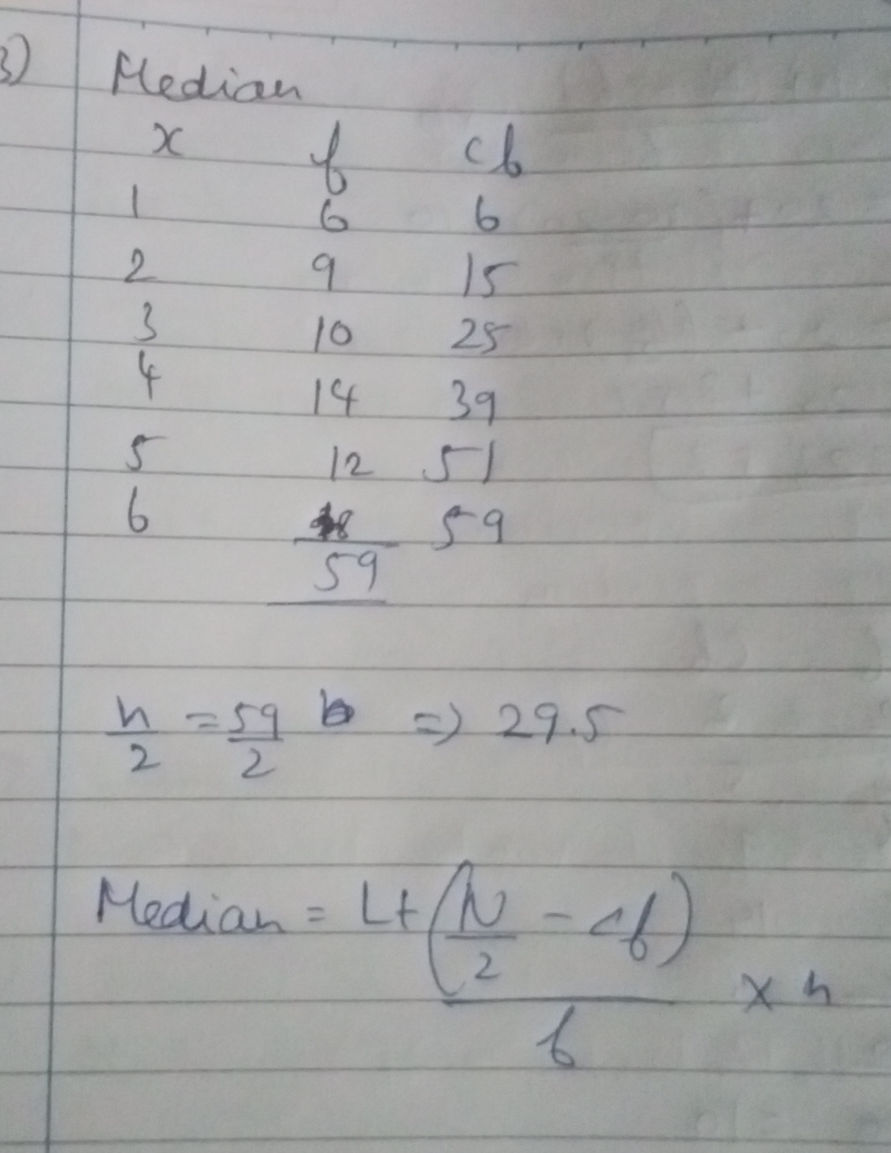 3) Median
x f cf
1 6 6
2 9 15
3 10 25
4 14 39
5 12 51
6 8 59
59
n/2 = 59/2 => 29.5
Median = L+(N/2 - cf)/f x h